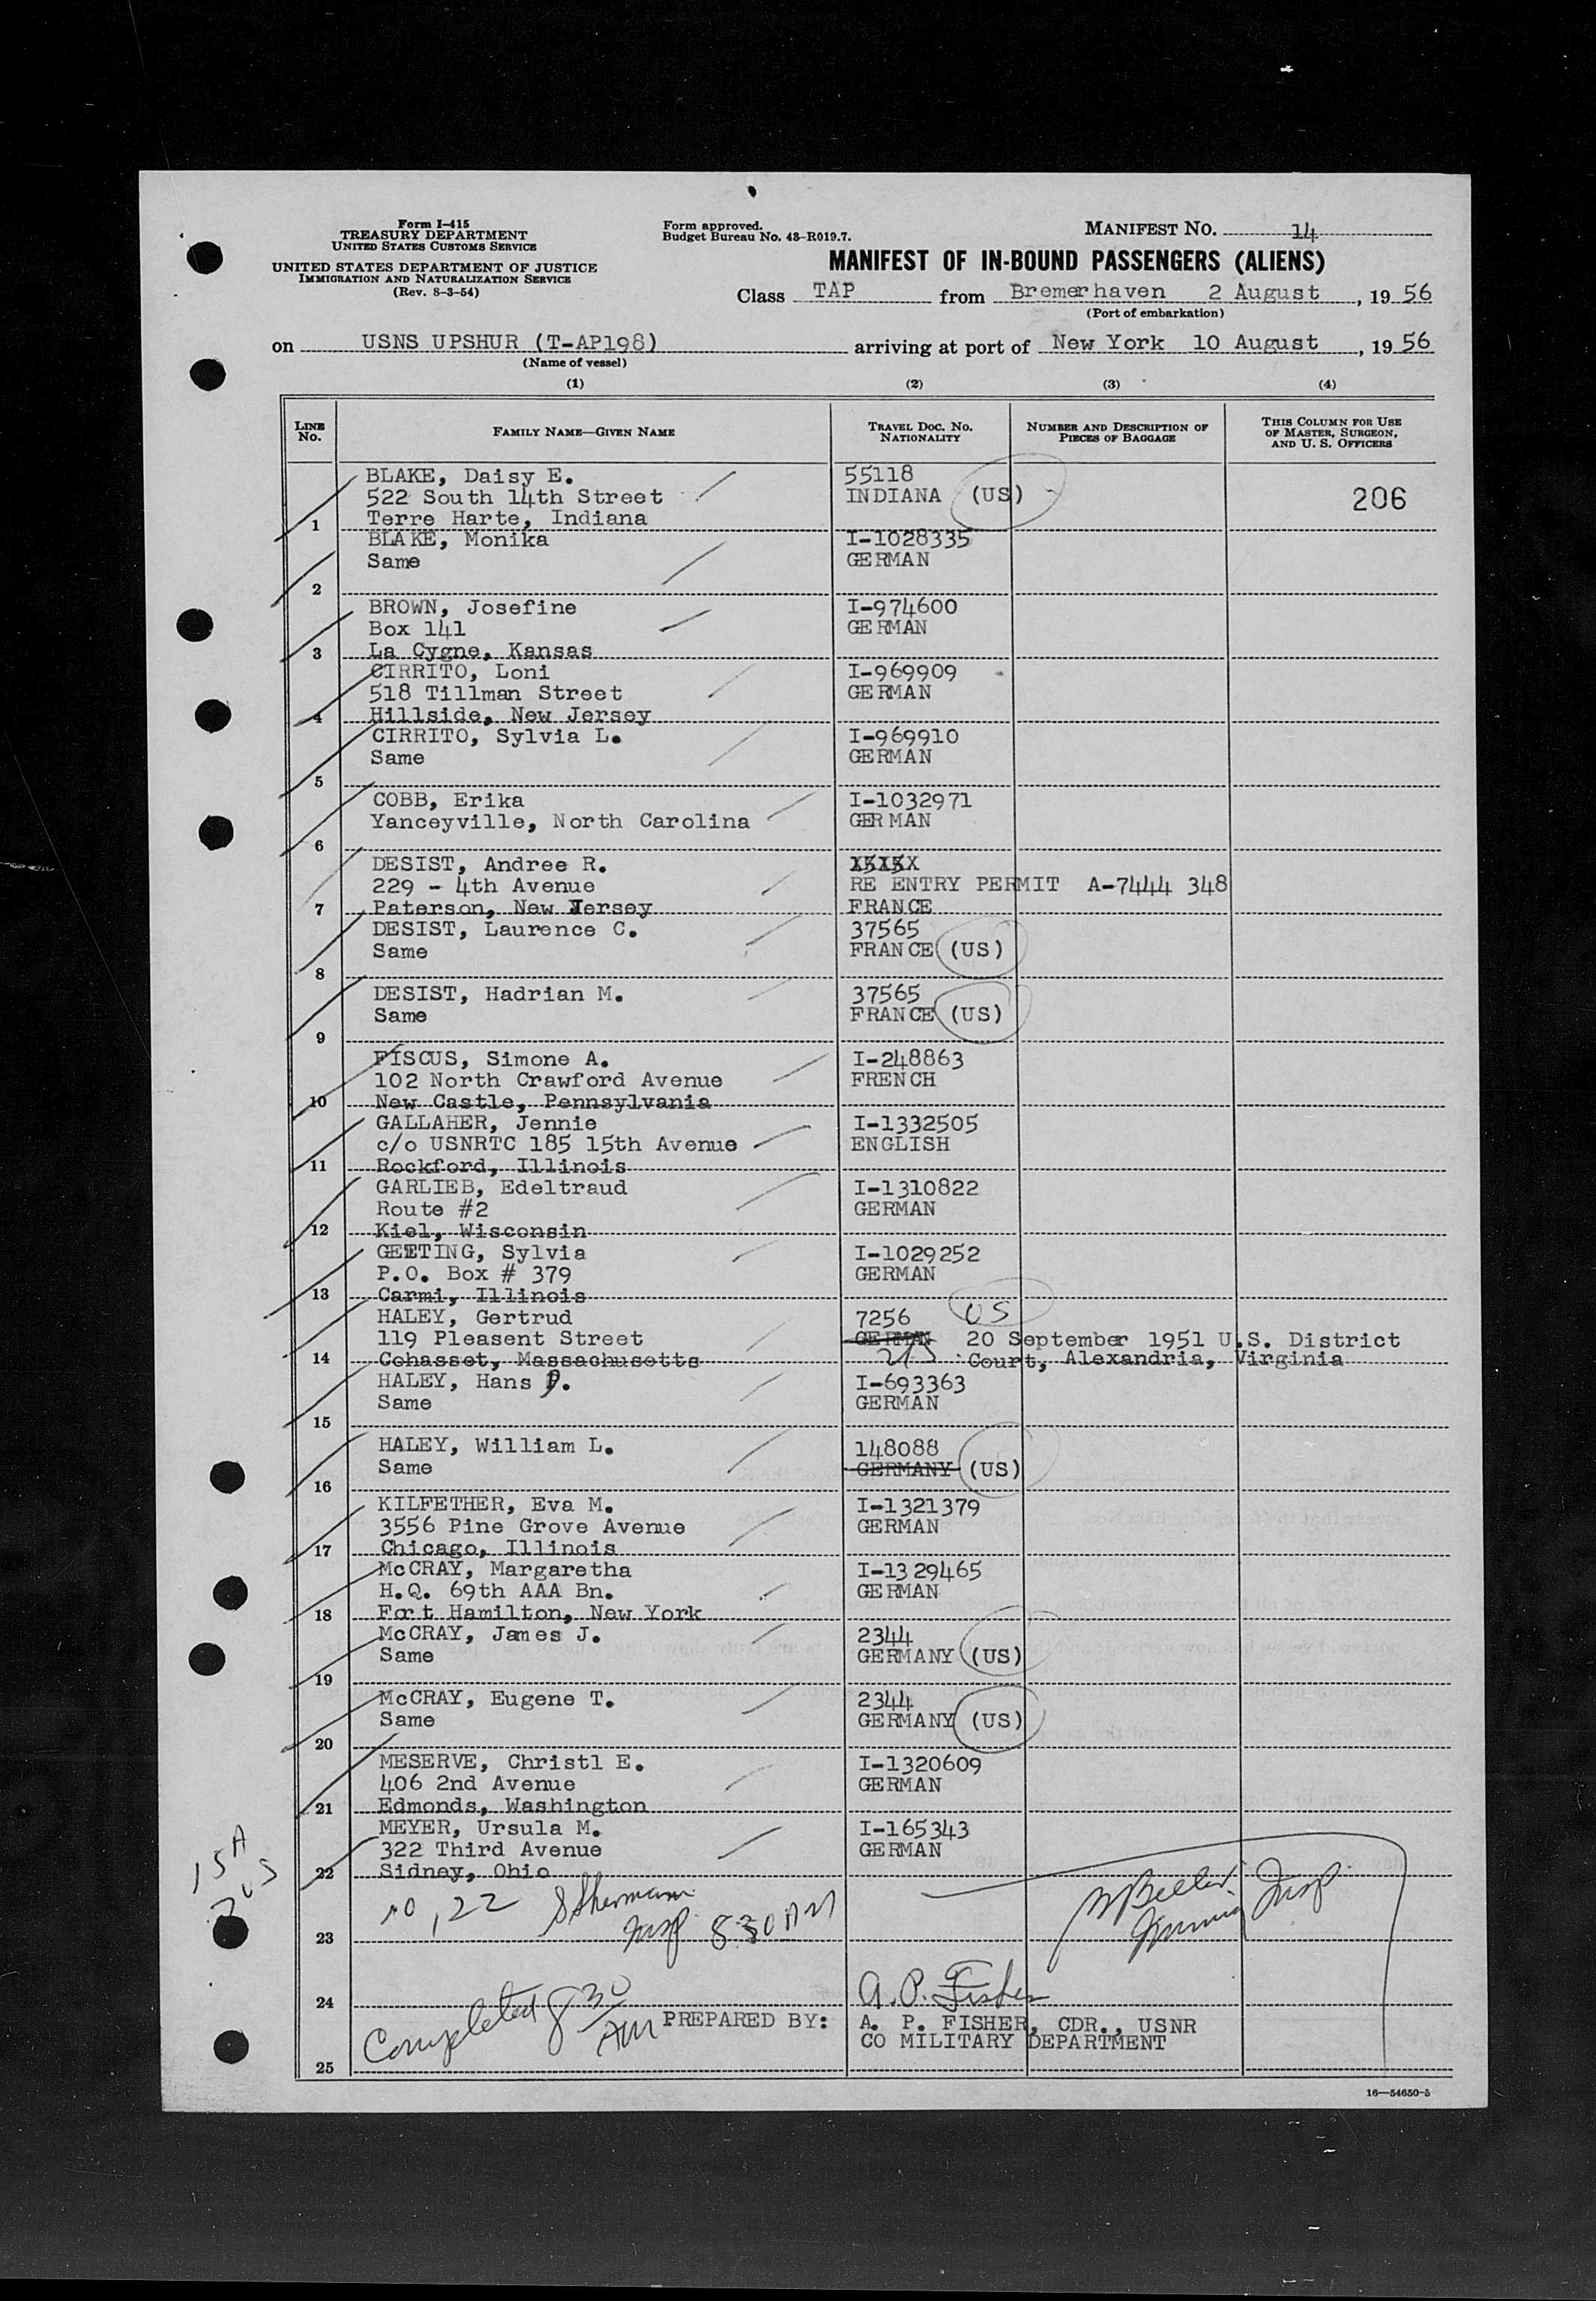 Form I-415
TREASURY DEPARTMENT
UNITED STATES CUSTOMS SERVICE
UNITED STATES DEPARTMENT OF JUSTICE
IMMIGRATION AND NATURALIZATION SERVICE
(Rev. 8-3-54)
Form approved.
Budget Bureau No. 43-R019.7.
MANIFEST NO. 14
MANIFEST OF IN-BOUND PASSENGERS (ALIENS)
Class TAP from Bremerhaven 2 August, 19 56
(Port of embarkation)
on USNS UPSHUR (T-AP198) arriving at port of New York 10 August, 19 56
(Name of vessel)
(1) (2) (3) (4)
LINE NO. FAMILY NAME—GIVEN NAME TRAVEL DOC. NO. NATIONALITY NUMBER AND DESCRIPTION OF PIECES OF BAGGAGE THIS COLUMN FOR USE OF MASTER, SURGEON, AND U. S. OFFICERS
BLAKE, Daisy E. 55118
522 South 14th Street INDIANA (US) 206
1 Terre Harte, Indiana
BLAKE, Monika I-1028335
Same GERMAN
2
BROWN, Josefine I-974600
Box 141 GERMAN
3 La Cygne, Kansas
CIRRITO, Loni I-969909
518 Tillman Street GERMAN
4 Hillside, New Jersey
CIRRITO, Sylvia L. I-969910
Same GERMAN
5
COBB, Erika I-1032971
Yanceyville, North Carolina GERMAN
6
DESIST, Andree R.
229 - 4th Avenue RE ENTRY PERMIT A-7444 348
7 Paterson, New Jersey FRANCE
DESIST, Laurence C. 37565
Same FRANCE (US)
8
DESIST, Hadrian M. 37565
Same FRANCE (US)
9
FISCUS, Simone A. I-248863
102 North Crawford Avenue FRENCH
10 New Castle, Pennsylvania
GALLAHER, Jennie I-1332505
c/o USNRTC 185 15th Avenue ENGLISH
11 Rockford, Illinois
GARLIEB, Edeltraud I-1310822
Route #2 GERMAN
12 Kiel, Wisconsin
GEETING, Sylvia I-1029252
P.O. Box # 379 GERMAN
13 Carmi, Illinois
HALEY, Gertrud 7256 US
119 Pleasent Street GERMAN 20 September 1951 U.S. District
14 Cohasset, Massachusetts Court, Alexandria, Virginia
HALEY, Hans P. I-693363
Same GERMAN
15
HALEY, William L. 148088
Same GERMANY (US)
16
KILFETHER, Eva M. I-1321379
3556 Pine Grove Avenue GERMAN
17 Chicago, Illinois
McCRAY, Margaretha I-1329465
H.Q. 69th AAA Bn. GERMAN
18 Fort Hamilton, New York
McCRAY, James J. 2344
Same GERMANY (US)
19
McCRAY, Eugene T. 2344
Same GERMANY (US)
20
MESERVE, Christl E. I-1320609
406 2nd Avenue GERMAN
21 Edmonds, Washington
MEYER, Ursula M. I-165343
322 Third Avenue GERMAN
22 Sidney, Ohio
15 A
Insp
22 SSherman
Insp 830 AM
23
A.P. Fisher
24
Completed 830 AM PREPARED BY: A. P. FISHER, CDR., USNR
CO MILITARY DEPARTMENT
25
16—54650-5